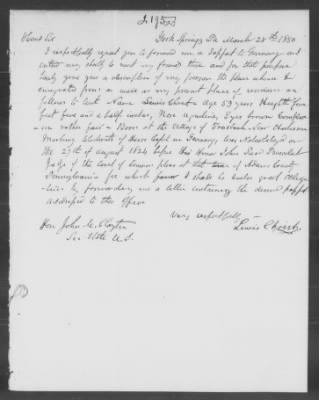 York Springs Pa March 28th 1850
Hond Sir
I respectfully request you to forward me a passport to Germany and
other may shally to meet my friend there and for that purpose
hereby give you a description of my person the place where he
emigrated from as well as my present place of residence as
follows to wit Name Lewis Christ Age 53 years Heighth five
feet five and a half inches, Nose aquiline, Eyes brown Complex
-ion rather fair Born at the village of
Electorate of Hesse Cassel in Germany, was Naturalized on
the 27th of August 1824 before His Honor John Reed President
Judge of the Court of common pleas at that time of Adams County
Pennsylvania for which favor I shall be under great obliga-
tions by forwarding me a letter containing the desired passport
addressed to this office
Very respectfully
Lewis Christ
Hon John M. Clayton
Sec State U.S.